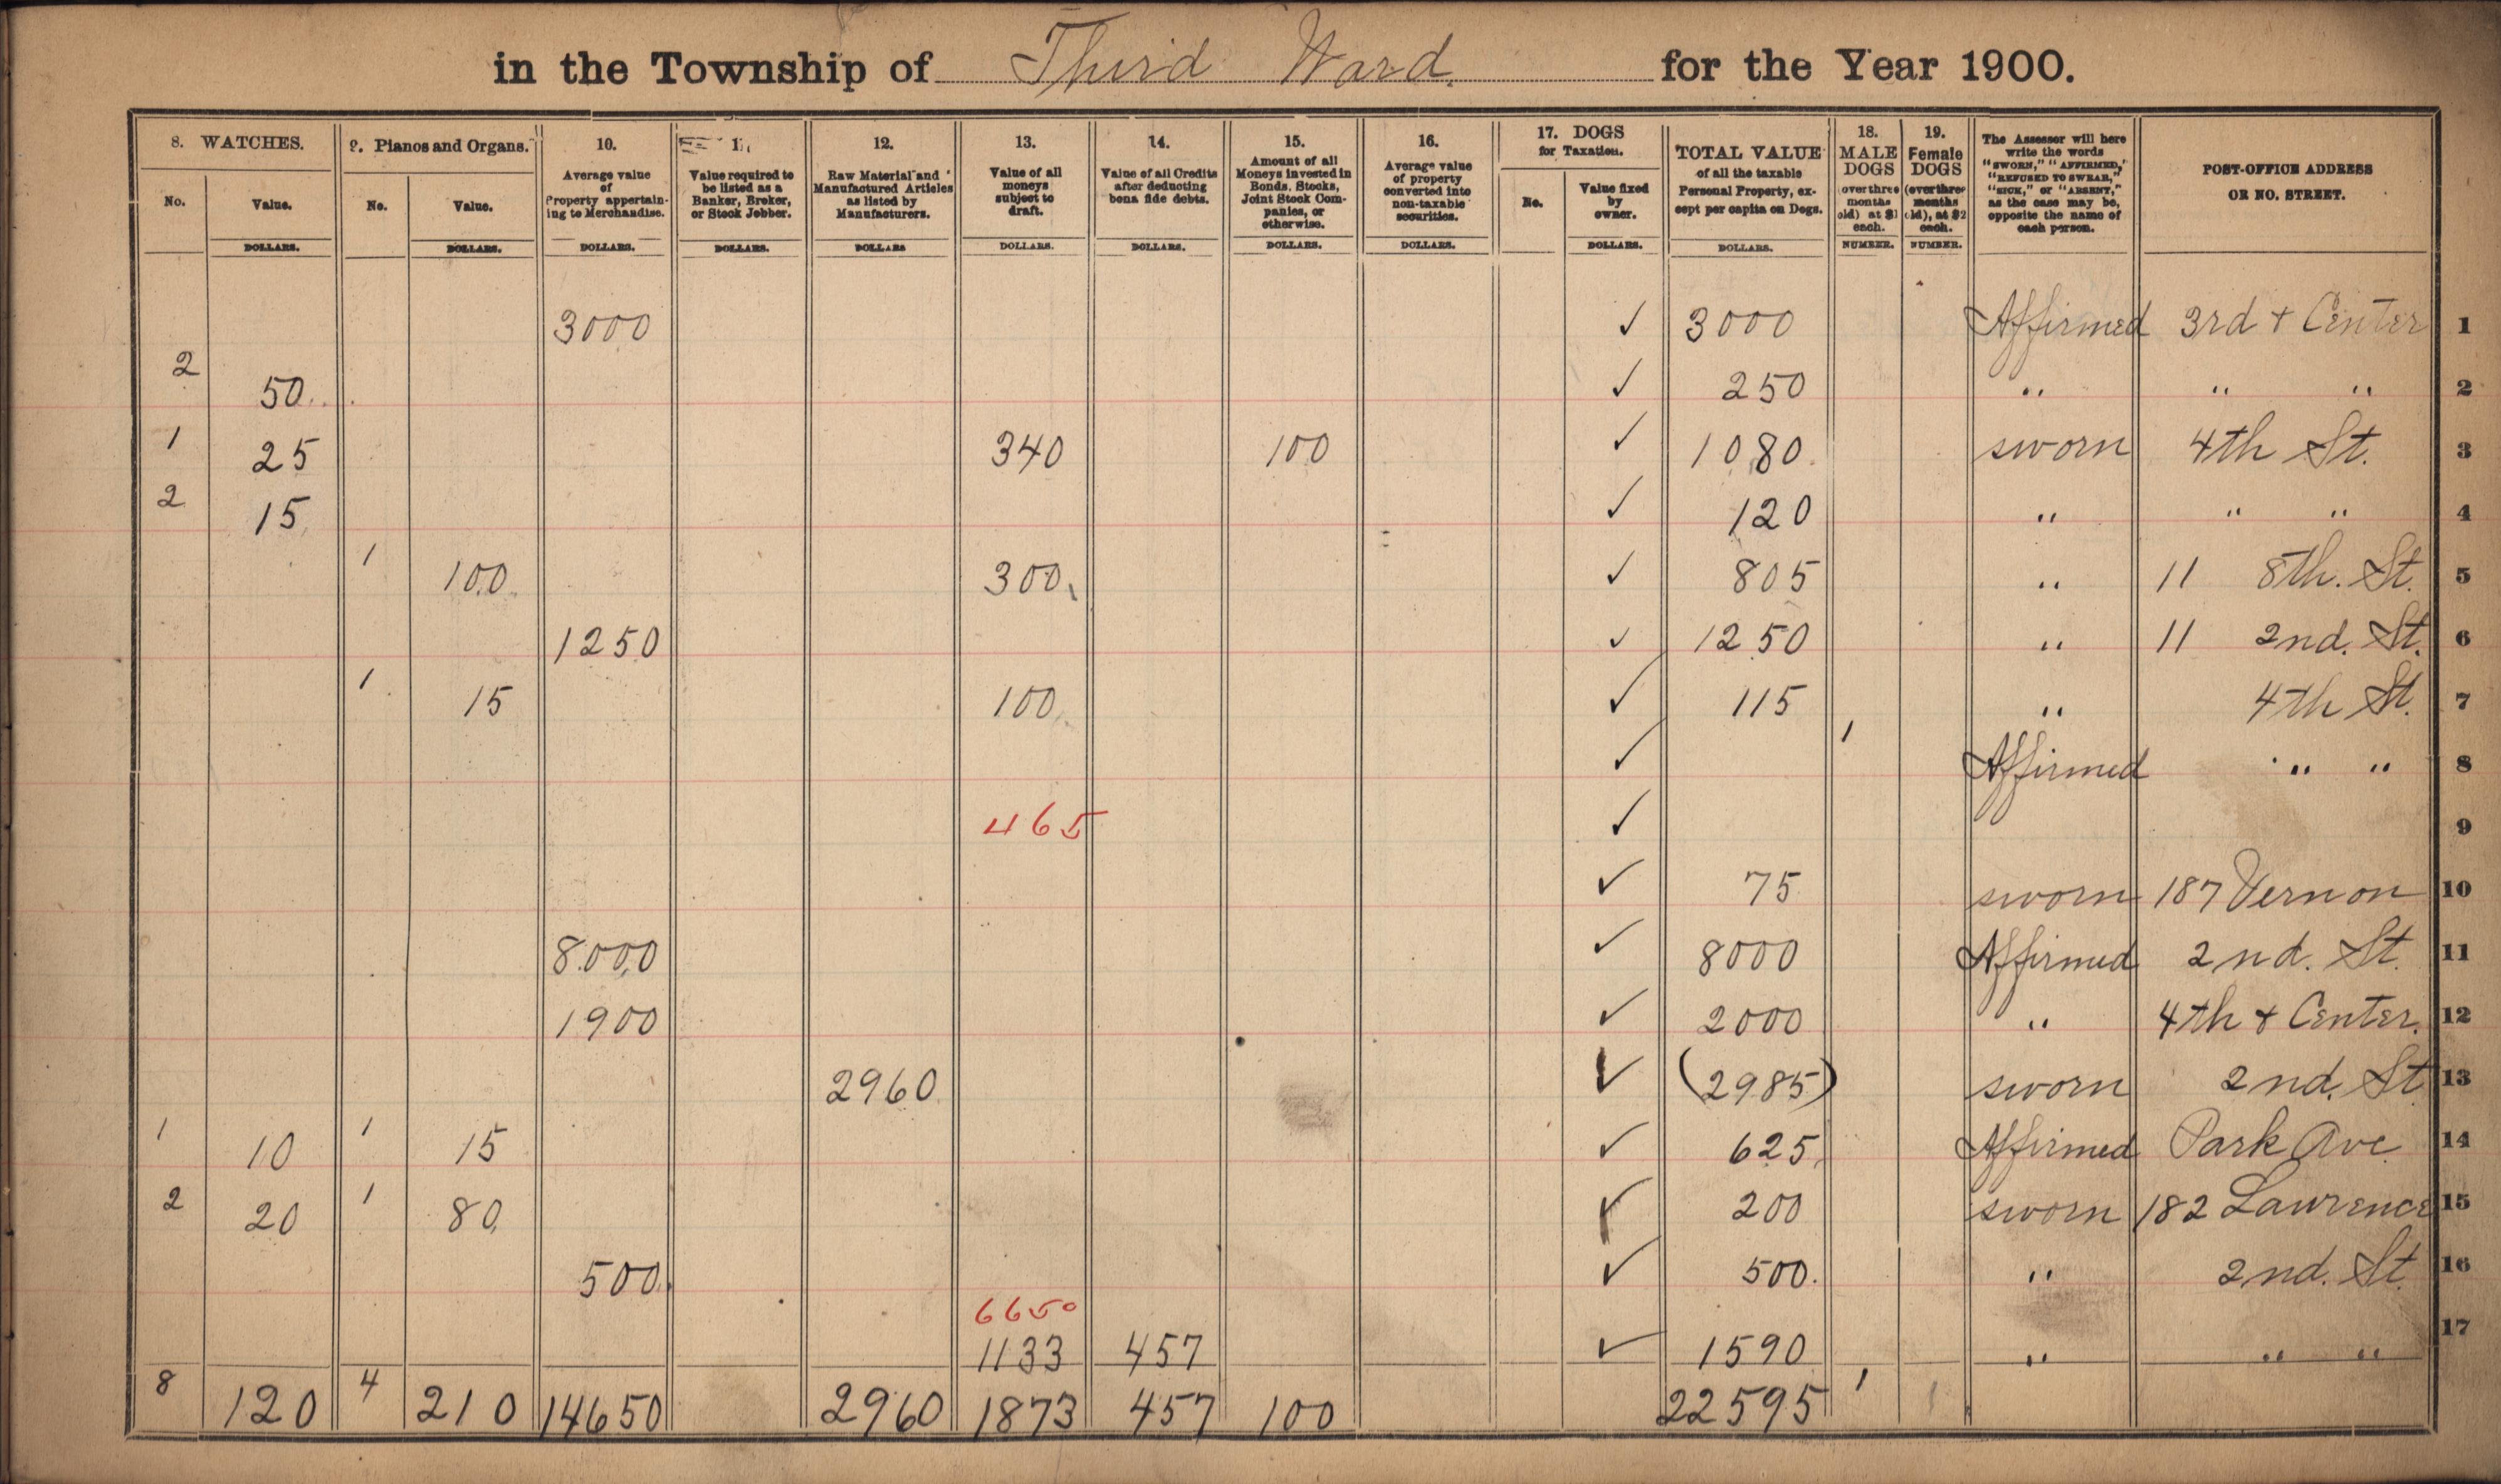 in the Township of Third Ward. for the Year 1900.
8. WATCHES. 9. Pianos and Organs. 10. 12. 13. 14. 15. 16. 17. DOGS for Taxation. TOTAL VALUE of all the taxable Personal Property, except per capita on Dogs. 18. MALE DOGS (over three months old) at $1 each. 19. Female DOGS (over three months old), at $2 each. The Assessor will here write the words "SWORN," "AFFIRMED," "REFUSED TO SWEAR," "SICK," or "ABSENT," as the case may be, opposite the name of each person. POST-OFFICE ADDRESS OR NO. STREET.
No. Value. No. Value. Average value of Property appertaining to Merchandise. Value required to be listed as a Banker, Broker, or Stock Jobber. Raw Material and Manufactured Articles as listed by Manufacturers. Value of all moneys subject to draft. Value of all Credits after deducting bona fide debts. Amount of all Moneys invested in Bonds, Stocks, Joint Stock Companies, or otherwise. Average value of property converted into non-taxable securities. No. Value fixed by owner.
DOLLARS. DOLLARS. DOLLARS. DOLLARS. DOLLARS DOLLARS. DOLLARS. DOLLARS. DOLLARS. DOLLARS. DOLLARS. NUMBER. NUMBER.
3000 ✓ 3000 Affirmed 3rd + Center 1
2 50 ✓ 250 " " " 2
1 25 340 100 ✓ 1080 sworn 4th St. 3
2 15 ✓ 120 " " " 4
1 100 300 ✓ 805 " 11 8th. St. 5
1250 ✓ 1250 " 11 2nd. St. 6
1 15 100 ✓ 115 " 4th St. 7
✓ 1 Affirmed " " 8
465 ✓ 9
✓ 75 sworn 187 Vernon 10
8000 ✓ 8000 Affirmed 2nd. St. 11
1900 ✓ 2000 " 4th & Center. 12
2960 ✓ (2985) sworn 2nd. St 13
1 10 1 15 ✓ 625 Affirmed Park Ave. 14
2 20 1 80 ✓ 200 sworn 182 Lawrence 15
500 ✓ 500. " 2nd. St. 16
6650
1133 457 ✓ 1590 " " " 17
8 120 4 210 14650 2960 1873 457 100 22595 1